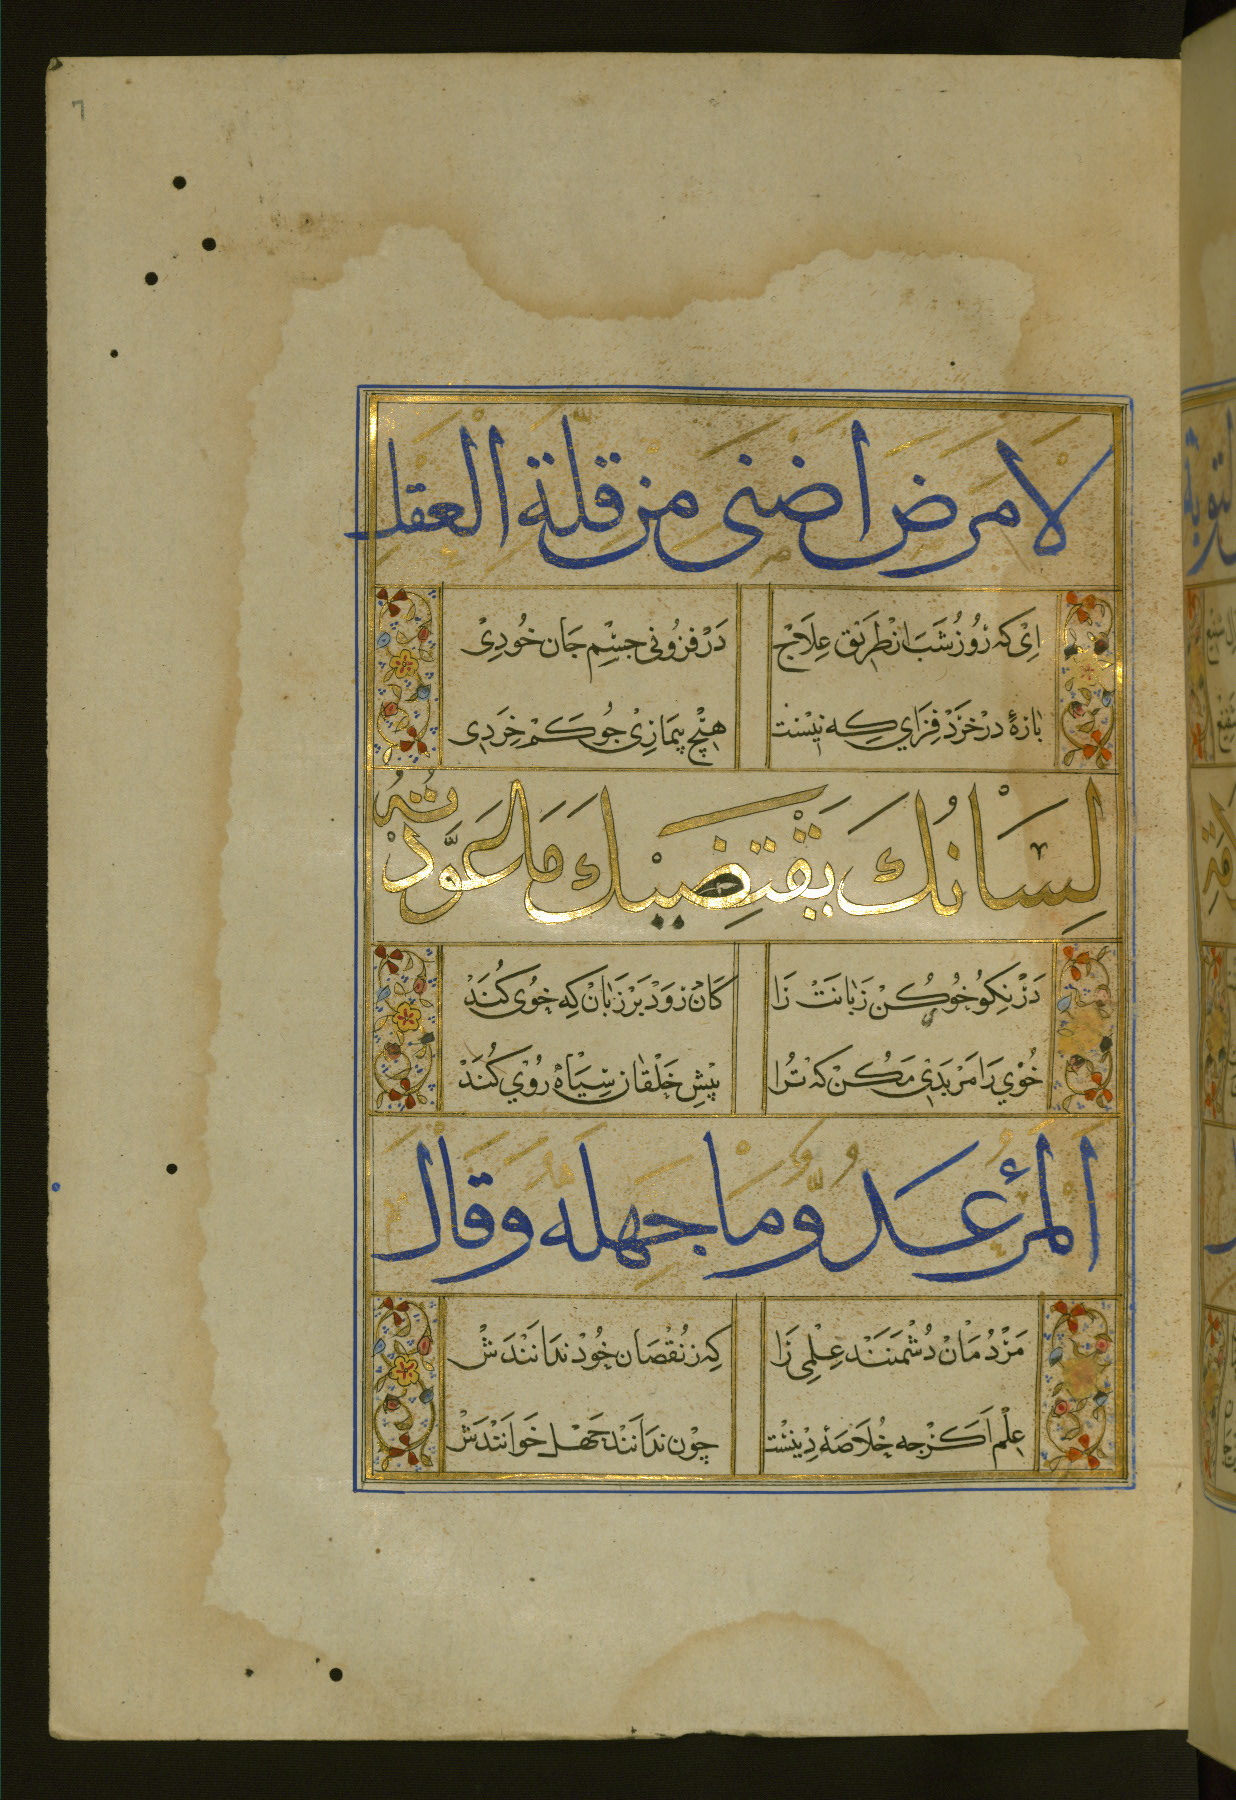 لا مرض اضنی من قلة العقل
ای که روز و شب از طریق علاج در فزونی جسم جان خودی
پاره در خرد فزای که نیست هیچ بیماری جو کم خردی
لسانك يقتضيك ما عودته
در نکو خو کن زبانت را کان رود بر زبان که خوی کند
خوی را مر بدی مکن که ترا پیش خلقان سیاه روی کند
المرء عدو ما جهله وقال
مردمان دشمنند علمی را که ز نقصان خود ندانندش
علم اکر جه خلاصه دینست چون ندانند جهل خوانندش